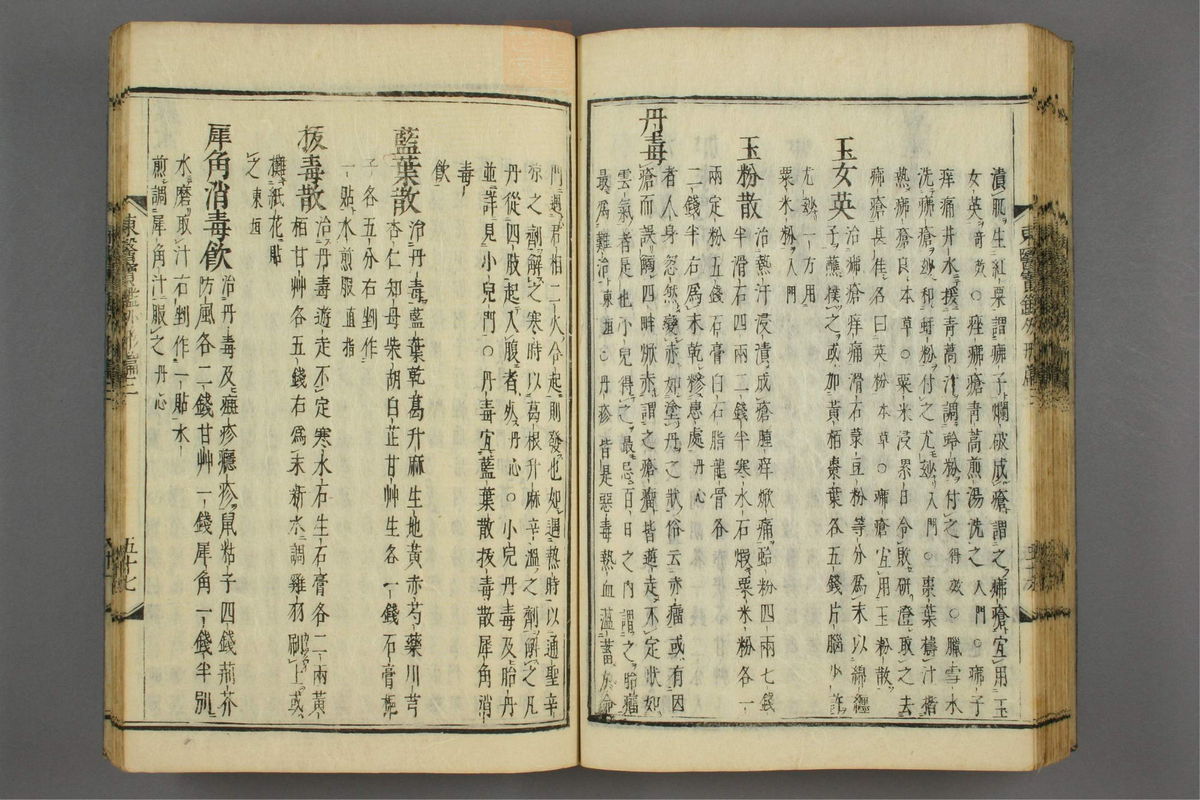 潰肌生紅栗謂疿子爛破成瘡謂之疿瘡宜用玉
女英奇效○痤疿瘡青蒿煎湯洗之入門○疿子
痒痛井水挼青蒿汁調蛤粉付之得效○臘雪水
洗疿瘡妙和蚌粉付之尤妙入門○棗葉擣汁揩
熱疿瘡良本草○粟米浸累日令敗研澄取之去
疿瘡甚佳名曰英粉本草○疿瘡宜用玉粉散
玉女英 治疿瘡痒痛滑石菉豆粉等分爲末以綿纒
子蘸撲之或加黃栢棗葉各五錢片腦少許
尤妙一方用
粟米粉入門
玉粉散 治熱汗浸漬成瘡腫痒焮痛蛤粉四兩七錢
半滑石四兩二錢半寒水石煆粟米粉各一
兩定粉五錢石膏白石脂龍骨各
二錢半右爲末乾糝患處丹心
丹毒 者人身忽然變赤如塗丹之狀俗云赤瘤或有因
瘡而誤觸四畔焮赤謂之瘡瘤皆遊走不定狀如
雲氣者是也小兒得之最忌百日之內謂之胎瘤
最爲難治東垣○丹疹皆是惡毒熱血薀蓄於命
東醫寶鑑外形篇三
門遇君相二火合起則發也如遇熱時以通聖辛
凉之劑解之寒時以葛根升麻辛溫之劑解之凡
丹從四肢起入腹者死丹心○小兒丹毒及胎丹
並詳見小兒門○丹毒宜藍葉散拔毒散犀角消
毒
飮
藍葉散 治丹毒藍葉乾葛升麻生地黃赤芍藥川芎
杏仁知母柴胡白芷甘艸生各一錢石膏梔
子各五分右剉作
一貼水煎服直指
拔毒散 治丹毒遊走不定寒水石生石膏各二兩黃
栢甘艸各五錢右爲末新水調雞羽刷上或
櫵紙花貼
之東垣
犀角消毒飮 治丹毒及癮疹鼠粘子四錢荊芥
防風各二錢甘艸一錢犀角一錢半別
水磨取汁右剉作一貼水
煎調犀角汁服之丹心
東醫寶鑑外形篇三
五十七